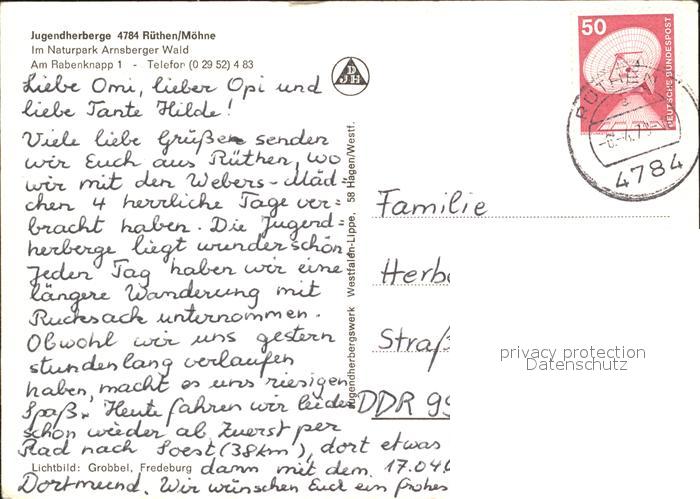 Jugendherberge 4784 Rüthen/Möhne
Im Naturpark Arnsberger Wald
Am Rabenknapp 1 - Telefor (0 29 52) 4 83
DJH
50
DEUTSCHE BUNDESPOST
4784
Liebe Omi, lieber Opi und
liebe Tante Hilde!
Viele liebe Grüße senden
wir Euch aus Rüthen, wo
wir mit den Webers-Mäd-
chen 4 herrliche Tage ver-
bracht haben. Die Jugend-
herberge liegt wunderschön.
Jeden Tag haben wir eine
längere Wanderung mit
Rucksack unternommen.
Obwohl wir uns gestern
stundenlang verlaufen
haben, macht es uns riesigen
Spaß. Heute fahren wir leider
schon wieder ab. Zuerst per
Rad nach Soest (38km), dort etwas
Lichtbild: Grobbel, Fredeburg
dann mit dem 17.04
Dortmund. Wir wünschen Euch ein frohes
Jugendherbergswerk Westfalen-Lippe, 58 Hagen/Westf.
Familie
Herbe
Straß
DDR 99
privacy protection
Datenschutz